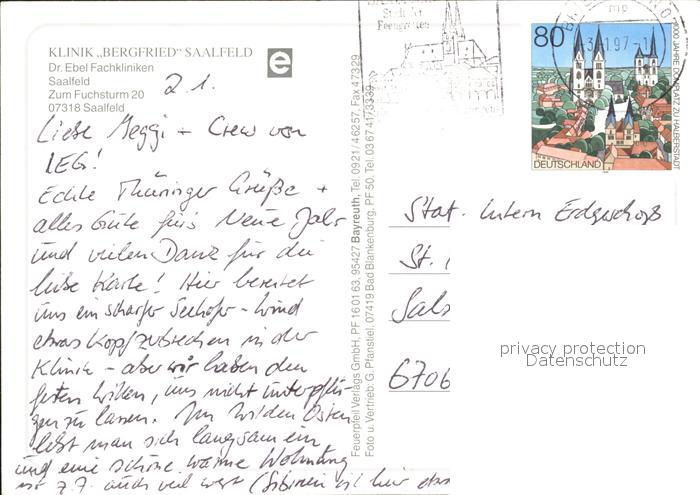 KLINIK „BERGFRIED" SAALFELD
Dr. Ebel Fachkliniken
Saalfeld
Zum Fuchsturm 20
07318 Saalfeld
e
2.1.
Liebe Meggi + Crew von
IEG!
Echte Thüringer Grüße +
alles Gute fürs Neue Jahr
und vielen Dank für die
liebe Karte! Hier bereitet
uns ein scharfer Seehofer-Wind
etwas Kopfzubrechen in der
Klinik - aber wir haben den
festen Willen, uns nicht unterpflü-
gen zu lassen. Im Wilden Osten
lebt man sich langsam ein
und eine schöne warme Wohnung
ist z.Z. auch viel wert (Sibirien ist hier etwas
Feuerpfeil Verlags GmbH, PF 16 01 63, 95427 Bayreuth, Tel. 0921/46257, Fax 47329
Foto u. Vertrieb: G. Pfanstiel, 07419 Bad Blankenburg, PF 50, Tel. 03 67 41/3339
Stadt der
Feengrotten
97-1
80
DEUTSCHLAND
1000 JAHRE DOMPLATZ ZU HALBERSTADT
Stat. Intern Erdgeschoß
St.
Sals
6706
privacy protection
Datenschutz